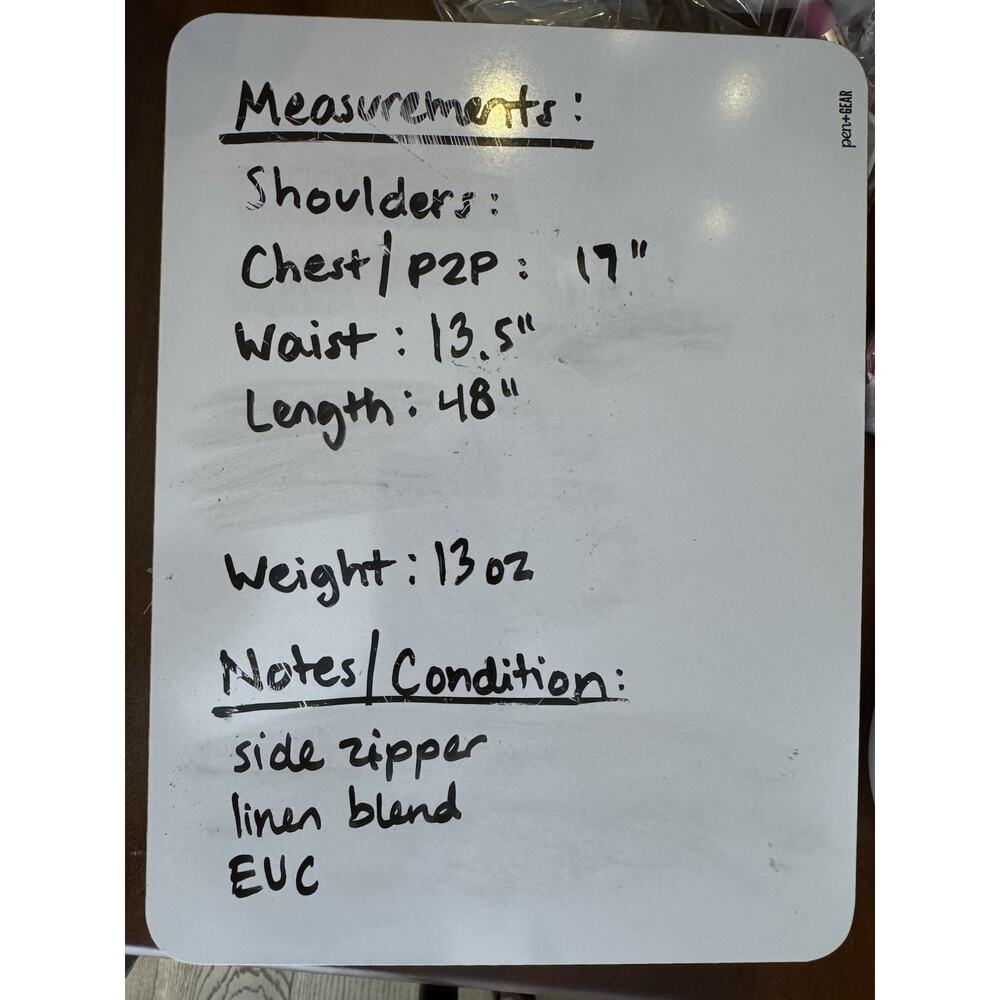 Measurements:
pen+GEAR
Shoulders:
Chest/P2P: 17"
Waist: 13.5"
Length: 48"
Weight: 13 oz
Notes/Condition:
side zipper
linen blend
EUC